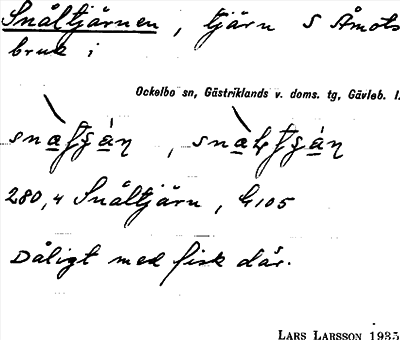 Snåltjärnen, tjärn S Åmots
bruk i
Ockelbo sn, Gästriklands v. doms. tg, Gävleb. l.
280,4 Snåltjärn, G105
Dåligt med fisk där.
LARS LARSSON 1935